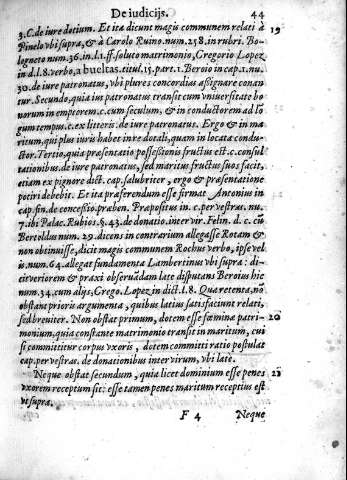 De iudicijs. 44
3.C. de iure dotium. Et ita dicunt magis communem relati à 19
Pinelo vbi supra, & à Carolo Ruino. num. 28. in rubri. Bo-
logneto num. 36. in l. 1. ff. soluto matrimonio, Gregorio Lopez
in d.l. 8. verbo, a bueltas. titul. 15. part. 1. Beroio in cap. 1. nu.
30. de iure patronatus, vbi plures concordias assignare conan
tur. Secundo, quia ius patronatus transit cum vniuersitate bo
norum in emptorem. c. cum sæculum, & in conductorem ad lō
gum tempus. c. ex litteris. de iure patronatus. Ergo & in ma-
ritum, qui plus iuris habet in re dotali, quam in locata condu-
ctor. Tertio, quia præsentatio possessionis fructus est. c. consul
tationibus. de iure patronatus, sed maritus fructus suos facit,
etiam ex pignore dict. cap. salubriter, ergo & præsentatione
potiri debebit. Et ita præserendum esse firmat Antonius in
cap. fin. de concessio. præben. Præpositus in c. per vestras. nu.
7. ibi Palac. Rubios. §. 43. de donatio. inter vir. Felin. d. c. cū
Bertoldus num. 29. dicens in contrarium allegasse Rotam &
non obtinuisse, dicit magis communem Rochus verbo, ipse vel
is. num. 64. allegat fundamenta Lambertinus vbi supra: di-
cit veriorem & praxi obseruādam late disputans Beroius hic
num. 34. cum alijs, Grego. Lopez in dict. l. 8. Quare tenta, nō
obstant priora argumenta, quibus latius satisfaciunt relati,
sed breuiter. Non obstat primum, dotem esse fœminæ patri- 20
monium, quia constante matrimonio transit in maritum, cui
si committitur corpus vxoris, dotem committi ratio postulat
cap. per vestras. de donationibus inter virum, vbi late.
Neque obstat secundum, quia licet dominium esse penes 21
vxorem receptum sit: esse tamen penes maritum receptius est
vt supra.
F 4 Neque